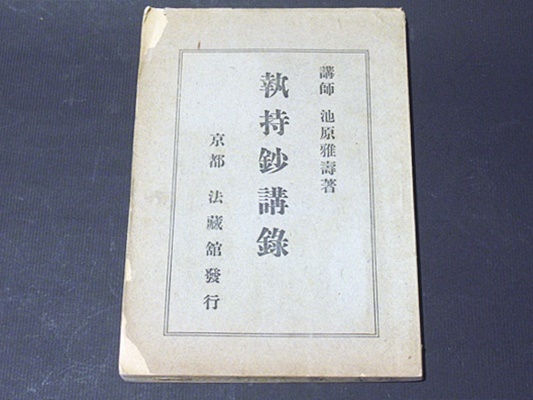 講師 池原雅壽著
執持鈔講錄
京都 法藏舘發行